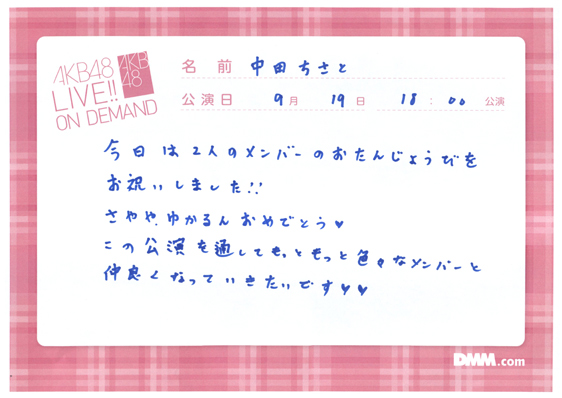 AKB48
LIVE!!
ON DEMAND
AKB
48
名 前 中田ちさと
公演日 9月 19日 18:00 公演
今日は2人のメンバーのおたんじょうびを
お祝いしました!!
さやや、ゆかるんおめでとう♥
この公演を通してもっともっと色々なメンバーと
仲良くなっていきたいです♥♥
DMM.com